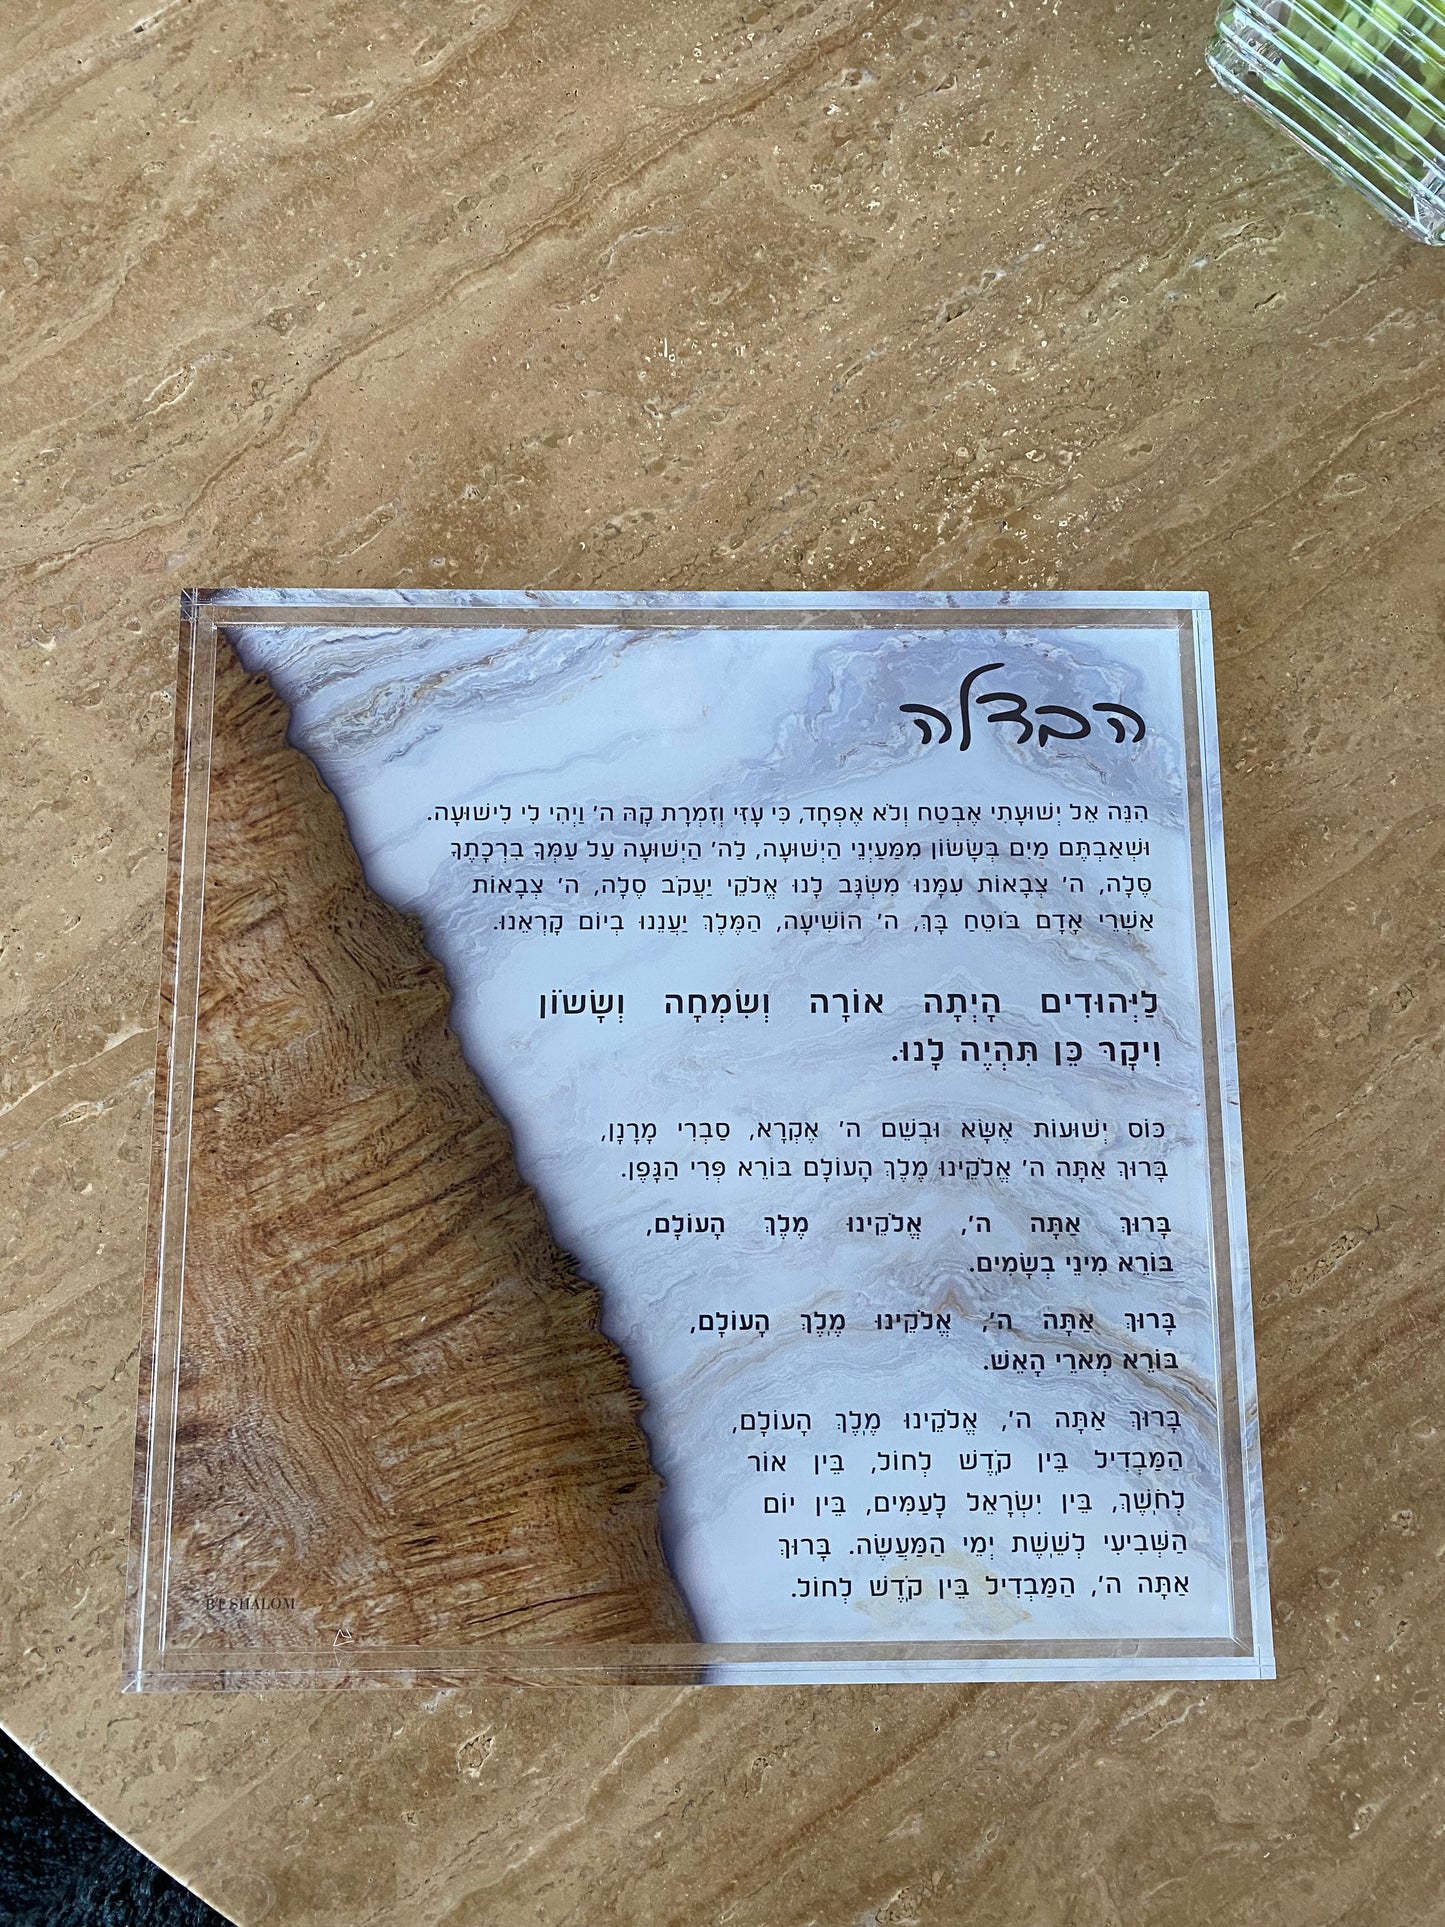 הבדלה
הִנֵּה אֵל יְשׁוּעָתִי אֶבְטַח וְלֹא אֶפְחָד, כִּי עָזִּי וְזִמְרָת קָהּ ה' וַיְהִי לִי לִישׁוּעָה.
וּשְׁאַבְתֶּם מַיִם בְּשָׂשׂוֹן מִמַּעַיְנֵי הַיְשׁוּעָה, לַה' הַיְשׁוּעָה עַל עַמְּךָ בִרְכָתֶךָ
סֶּלָה, ה' צְבָאוֹת עִמָּנוּ מִשְׂגָּב לָנוּ אֱלֹקֵי יַעֲקֹב סֶלָה, ה' צְבָאוֹת
אַשְׁרֵי אָדָם בֹּוטֵחַ בָּךְ, ה' הוֹשִׁיעָה, הַמֶּלֶךְ יַעֲנֵנוּ בְיוֹם קָרְאֵנוּ.
לַיְּהוּדִים הָיְתָה אוֹרָה וְשִׂמְחָה וְשָׂשׂוֹן
וִיקָר כֵּן תִּהְיֶה לָנוּ.
כּוֹס יְשׁוּעוֹת אֶשָּׂא וּבְשֵׁם ה' אֶקְרָא, סַבְרִי מָרָנָן,
בָּרוּךְ אַתָּה ה' אֱלֹקֵינוּ מֶלֶךְ הָעוֹלָם בּוֹרֵא פְּרִי הַגָּפֶן.
בָּרוּךְ אַתָּה ה', אֱלֹקֵינוּ מֶלֶךְ הָעוֹלָם,
בּוֹרֵא מִינֵי בְשָׂמִים.
בָּרוּךְ אַתָּה ה', אֱלֹקֵינוּ מֶלֶךְ הָעוֹלָם,
בּוֹרֵא מְאוֹרֵי הָאֵשׁ.
בָּרוּךְ אַתָּה ה', אֱלֹקֵינוּ מֶלֶךְ הָעוֹלָם,
הַמַּבְדִּיל בֵּין קֹדֶשׁ לְחוֹל, בֵּין אוֹר
לְחֹשֶׁךְ, בֵּין יִשְׂרָאֵל לָעַמִּים, בֵּין יוֹם
הַשְּׁבִיעִי לְשֵׁשֶׁת יְמֵי הַמַּעֲשֶׂה. בָּרוּךְ
אַתָּה ה', הַמַּבְדִּיל בֵּין קֹדֶשׁ לְחוֹל.
BT SHALOM